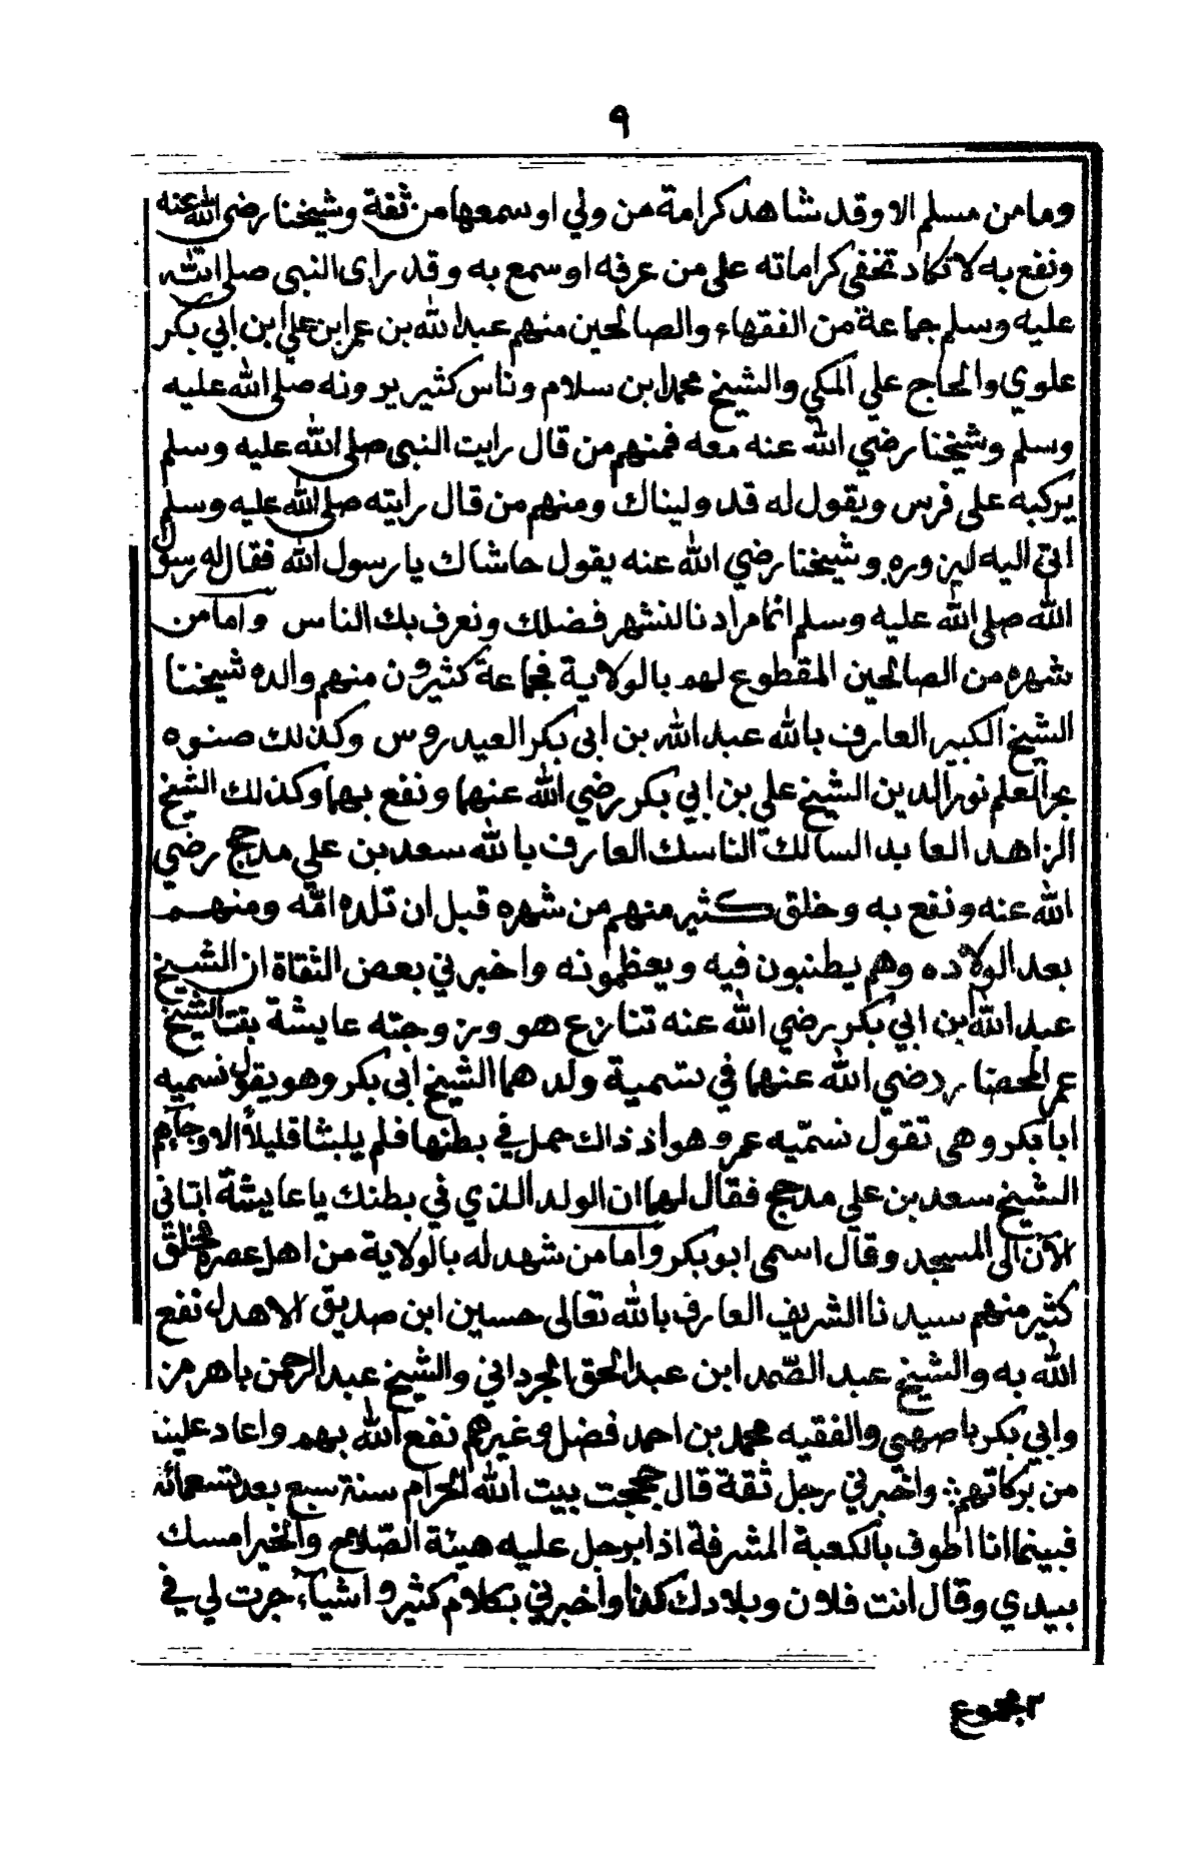 ٩
ومامن مسلم الا وقد شاهد كرامة من ولي او سمعها من ثقة وشيخنا رضي الله عنه
ونفع به لا تكاد تخفى كراماته على من عرفه او سمع به وقد راى النبى صلى الله
عليه وسلم جماعة من الفقهاء والصالحين منهم عبد الله بن عمر ابن علي ابن ابي بكر
علوي والحاج علي المكي والشيخ محمد ابن سلام وناس كثير يرونه صلى الله عليه
وسلم وشيخنا رضي الله عنه معه فمنهم من قال رايت النبى صلى الله عليه وسلم
يركبه على فرس ويقول له قد وليناك ومنهم من قال رايته صلى الله عليه وسلم
اتى اليه ليزوره وشيخنا رضي الله عنه يقول حاشاك يا رسول الله فقال له رسول
الله صلى الله عليه وسلم انما مرادنا لنشهر فضلك ونعرف بك الناس وامامن
شهره من الصالحين المقطوع لهم بالولاية فجماعة كثيرون منهم والده شيخنا
الشيخ الكبير العارف بالله عبد الله بن ابى بكر العيدروس وكذلك صنوه
بحر العلم نور الدين الشيخ علي بن ابي بكر رضي الله عنهما ونفع بهما وكذلك الشيخ
الزاهد العابد السالك الناسك العارف بالله سعد بن علي مدحج رضي
الله عنه ونفع به وخلق كثير منهم من شهره قبل ان تلده امّه ومنهم
بعد الولاده وهم يطنبون فيه ويعظمونه واخبرني بعض الثقاة ان الشيخ
عبد الله ابن ابي بكر رضي الله عنه تنازع هو وزوجته عايشة بنت الشيخ
عمر المحضار رضي الله عنهما في تسمية ولدهما الشيخ ابى بكر وهو يقول نسميه
ابابكر وهى تقول نسمّيه عمر وهو اذ ذاك حمل في بطنها فلم يلبثا قليلاً الا وجآءهم
الشيخ سعد بن علي مدحج فقال لهما ان الولد الذي في بطنك يا عايشة اتانى
الآن الى المسجد وقال اسمى ابو بكر وامامن شهد له بالولاية من اهل عصره فخلق
كثير منهم سيدنا الشريف العارف بالله تعالى حسين ابن صديق الاهدل نفع
الله به والشيخ عبد الصّمد ابن عبد الحق الجرداني والشيخ عبد الرحمن باهرمز
وابي بكر باصهي والفقيه محمد بن احمد فضل وغيرهم نفع الله بهم واعاد علينا
من بركاتهم واخبرني رجل ثقة قال حججت بيت الله الحرام سنة سبع بعد تسعمائة
فبينما انا اطوف بالكعبة المشرفة اذا برجل عليه هيئة الصّلاح والخير امسك
بيدي وقال انت فلان وبلادك كذا واخبرني بكلام كثير واشيآء جرت لي في
٢ مجموع